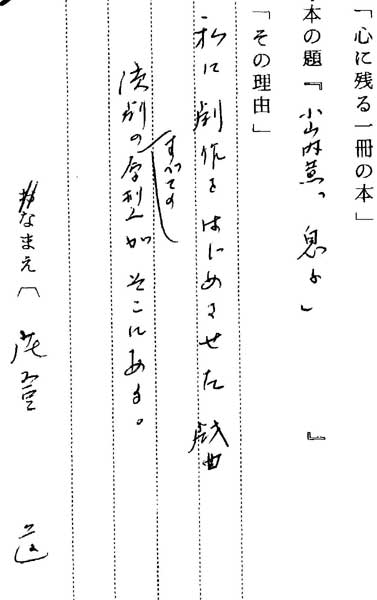 「心に残る一冊の本」
本の題『小山内薫 息子」』
「その理由」
私に劇作をはじめさせた戯曲
演劇のすべての原型がそこにある。
なまえ(